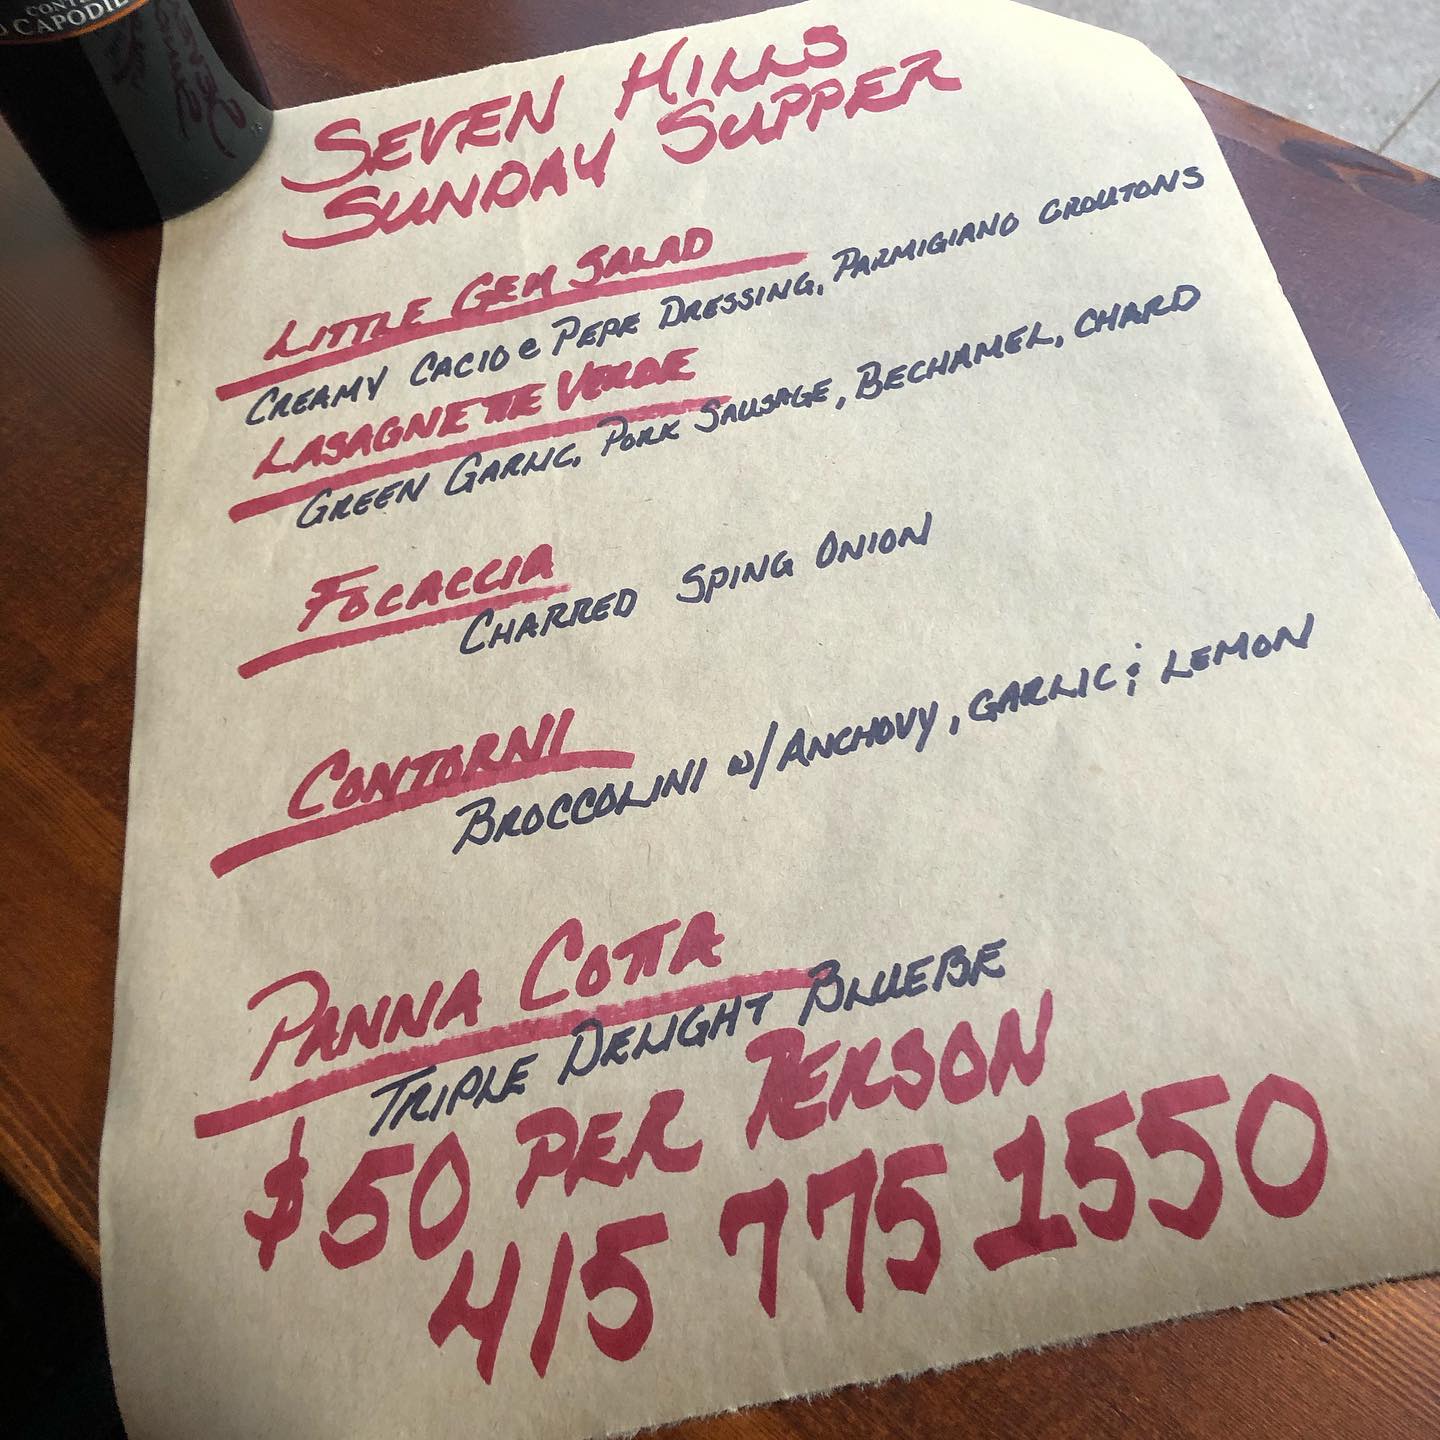 CAPODI
SEVEN HILLS
SUNDAY SUPPER
LITTLE GEM SALAD
CREAMY CACIO e PEPE DRESSING, PARMIGIANO CROUTONS
LASAGNETTE VERDE
GREEN GARLIC, PORK SAUSAGE, BECHAMEL, CHARD
FOCACCIA
CHARRED SPING ONION
CONTORNI
BROCCOLINI w/ ANCHOVY, GARLIC & LEMON
PANNA COTTA
TRIPLE DELIGHT BLUEBE
$50 PER PERSON
415 775 1550